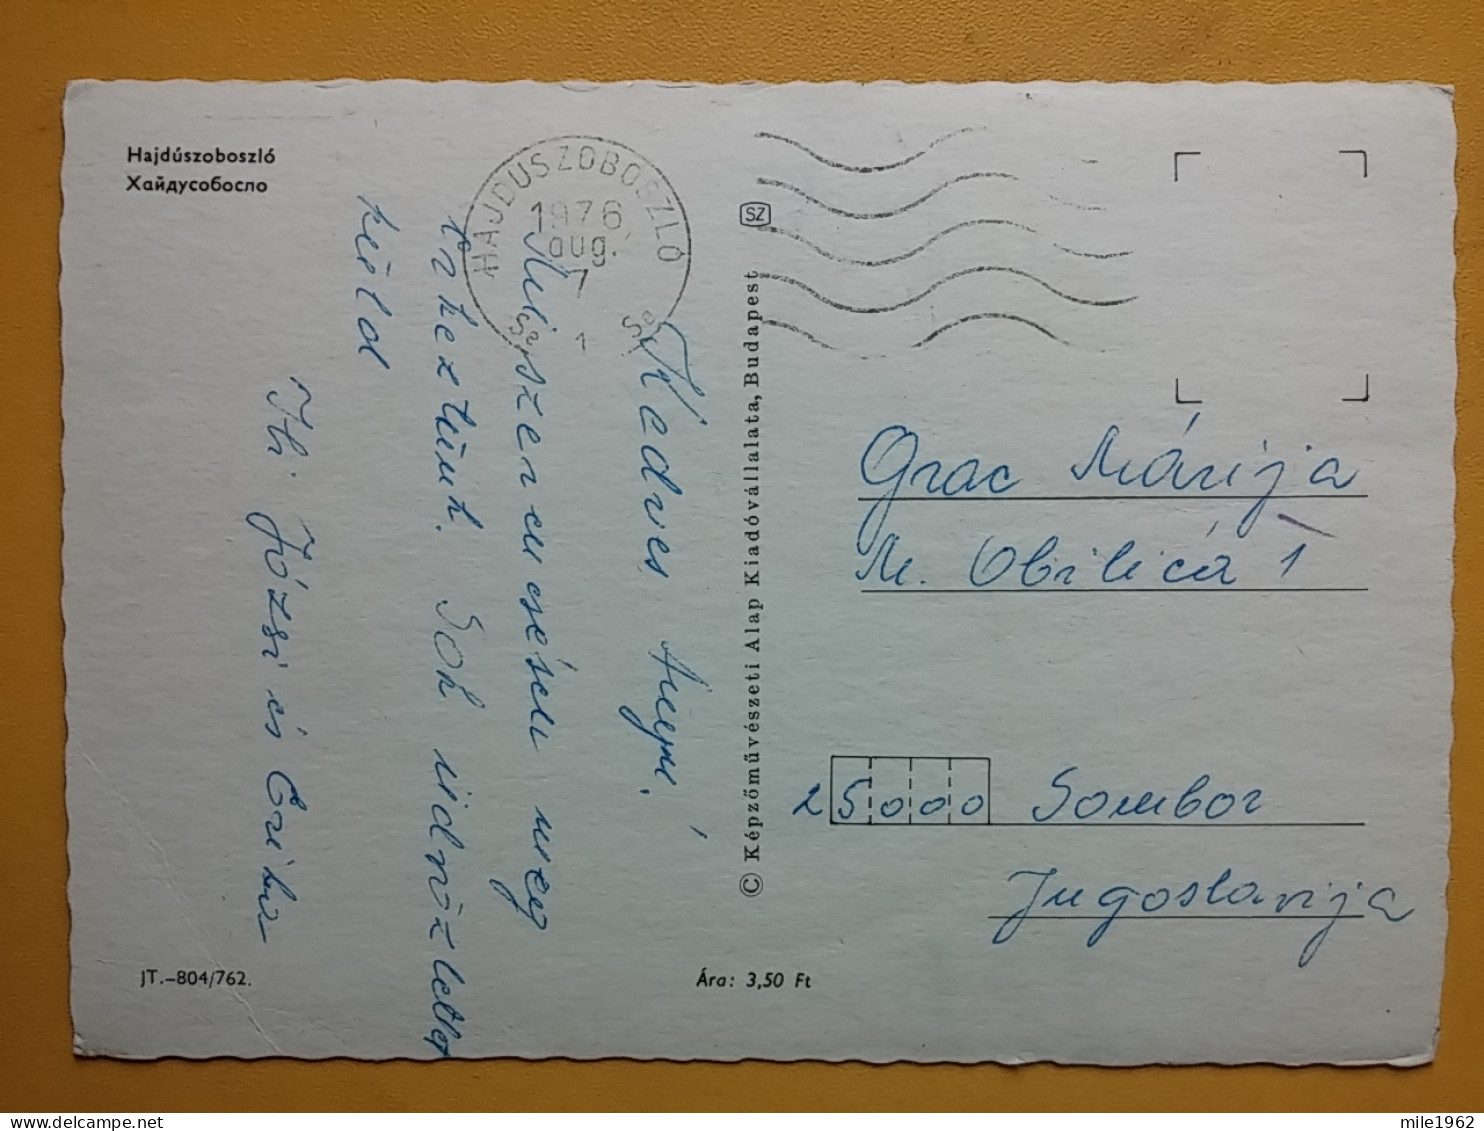 Hajdúszoboszló
Хайдусобосло
HAJDUSZOBOSZLÓ
1976
aug.
7
1
SZ
Kedves Anyu!
Mi szerencsésen meg
érkeztünk. Sok üdvözletet
küld
Józsi és Erika
© Képzőművészeti Alap Kiadóvállalata, Budapest
Grac Márija
M. Obilicá 1
25000 Sombor
Jugoslavija
JT.-804/762.
Ára: 3,50 Ft
mile1962